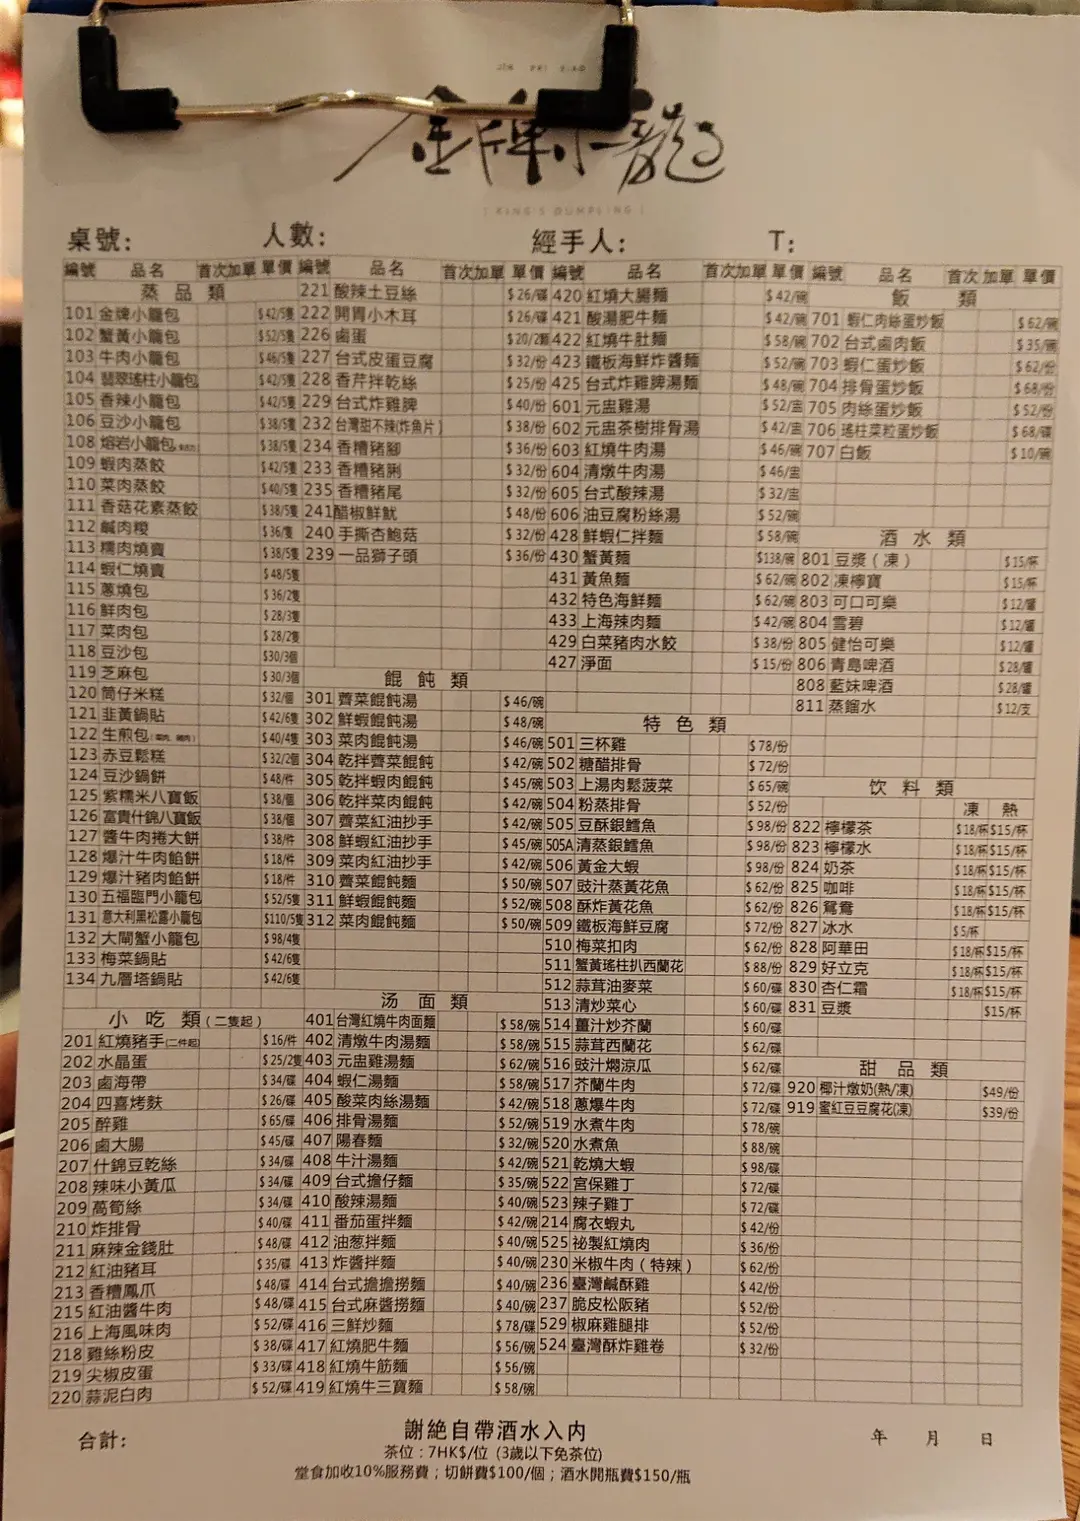 金牌小龍
[ KING'S DUMPLING ]
桌號: 人數: 經手人: T:
編號 品名 首次 加單 單價 編號 品名 首次 加單 單價 編號 品名 首次 加單 單價 編號 品名 首次 加單 單價
蒸品類
101 金牌小籠包 $42/5隻
102 蟹黃小籠包 $52/5隻
103 牛肉小籠包 $46/5隻
104 翡翠瑤柱小籠包 $42/5隻
105 香辣小籠包 $42/5隻
106 豆沙小籠包 $38/5隻
108 熔岩小籠包 $38/5隻
109 蝦肉蒸餃 $42/5隻
110 菜肉蒸餃 $40/5隻
111 香菇花素蒸餃 $38/5隻
112 鹹肉糉 $36/隻
113 糯肉燒賣 $38/5隻
114 蝦仁燒賣 $48/5隻
115 蔥燒包 $36/2隻
116 鮮肉包 $28/3隻
117 菜肉包 $28/2隻
118 豆沙包 $30/3個
119 芝麻包 $30/3個
120 筒仔米糕 $32/個
121 韭黃鍋貼 $42/6隻
122 生煎包(菜肉, 豬肉) $40/4隻
123 赤豆鬆糕 $32/2個
124 豆沙鍋餅 $48/件
125 紫糯米八寶飯 $38/個
126 富貴什錦八寶飯 $38/個
127 醬牛肉捲大餅 $38/件
128 爆汁牛肉餡餅 $18/件
129 爆汁豬肉餡餅 $18/件
130 五福臨門小籠包 $52/5隻
131 意大利黑松露小籠包 $110/5隻
132 大閘蟹小籠包 $98/4隻
133 梅菜鍋貼 $42/6隻
134 九層塔鍋貼 $42/6隻
小吃類(二隻起)
201 紅燒豬手(二件起) $16/件
202 水晶蛋 $25/2隻
203 鹵海帶 $34/碟
204 四喜烤麩 $26/碟
205 醉雞 $65/碟
206 鹵大腸 $45/碟
207 什錦豆乾絲 $34/碟
208 辣味小黃瓜 $34/碟
209 萵筍絲 $34/碟
210 炸排骨 $40/碟
211 麻辣金錢肚 $48/碟
212 紅油豬耳 $35/碟
213 香糟鳳爪 $48/碟
215 紅油醬牛肉 $48/碟
216 上海風味肉 $52/碟
218 雞絲粉皮 $38/碟
219 尖椒皮蛋 $33/碟
220 蒜泥白肉 $52/碟
221 酸辣土豆絲 $26/碟
222 開胃小木耳 $26/碟
226 鹵蛋 $20/2顆
227 台式皮蛋豆腐 $32/份
228 香芹拌乾絲 $25/份
229 台式炸雞脾 $40/份
232 台灣甜不辣(炸魚片) $38/份
234 香糟豬腳 $36/份
233 香糟豬脷 $32/份
235 香糟豬尾 $32/份
241 醋椒鮮魷 $48/份
240 手撕杏鮑菇 $32/份
239 一品獅子頭 $36/份
餛飩類
301 薺菜餛飩湯 $46/碗
302 鮮蝦餛飩湯 $48/碗
303 菜肉餛飩湯 $46/碗
304 乾拌薺菜餛飩 $42/碗
305 乾拌蝦肉餛飩 $45/碗
306 乾拌菜肉餛飩 $42/碗
307 薺菜紅油抄手 $42/碗
308 鮮蝦紅油抄手 $45/碗
309 菜肉紅油抄手 $42/碗
310 薺菜餛飩麵 $50/碗
311 鮮蝦餛飩麵 $52/碗
312 菜肉餛飩麵 $50/碗
汤面類
401 台灣紅燒牛肉面麵 $58/碗
402 清燉牛肉湯麵 $58/碗
403 元盅雞湯麵 $62/碗
404 蝦仁湯麵 $58/碗
405 酸菜肉絲湯麵 $42/碗
406 排骨湯麵 $52/碗
407 陽春麵 $32/碗
408 牛汁湯麵 $42/碗
409 台式擔仔麵 $35/碗
410 酸辣湯麵 $40/碗
411 番茄蛋拌麵 $42/碗
412 油葱拌麵 $40/碗
413 炸醬拌麵 $40/碗
414 台式擔擔撈麵 $40/碗
415 台式麻醬撈麵 $40/碗
416 三鮮炒麵 $78/碟
417 紅燒肥牛麵 $56/碗
418 紅燒牛筋麵 $56/碗
419 紅燒牛三寶麵 $58/碗
420 紅燒大腸麵 $42/碗
421 酸湯肥牛麵 $42/碗
422 紅燒牛肚麵 $58/碗
423 鐵板海鮮炸醬麵 $52/碗
425 台式炸雞脾湯麵 $48/碗
601 元盅雞湯 $52/盅
602 元盅茶樹排骨湯 $42/盅
603 紅燒牛肉湯 $46/碗
604 清燉牛肉湯 $46/盅
605 台式酸辣湯 $32/盅
606 油豆腐粉絲湯 $52/碗
428 鮮蝦仁拌麵 $58/碗
430 蟹黃麵 $138/碗
431 黃魚麵 $62/碗
432 特色海鮮麵 $62/碗
433 上海辣肉麵 $42/碗
429 白菜豬肉水餃 $38/份
427 淨面 $15/份
特色類
501 三杯雞 $78/份
502 糖醋排骨 $72/份
503 上湯肉鬆菠菜 $65/碗
504 粉蒸排骨 $52/份
505 豆酥銀鱈魚 $98/份
505A 清蒸銀鱈魚 $98/份
506 黃金大蝦 $98/份
507 豉汁蒸黃花魚 $62/份
508 酥炸黃花魚 $62/份
509 鐵板海鮮豆腐 $72/份
510 梅菜扣肉 $62/份
511 蟹黃瑤柱扒西蘭花 $88/份
512 蒜茸油麥菜 $60/碟
513 清炒菜心 $60/碟
514 薑汁炒芥蘭 $60/碟
515 蒜茸西蘭花 $62/碟
516 豉汁燜涼瓜 $62/碟
517 芥蘭牛肉 $72/碟
518 蔥爆牛肉 $72/碟
519 水煮牛肉 $78/碗
520 水煮魚 $88/碗
521 乾燒大蝦 $98/碟
522 宮保雞丁 $72/碟
523 辣子雞丁 $72/碟
214 腐衣蝦丸 $42/份
525 祕製紅燒肉 $36/份
230 米椒牛肉(特辣) $62/份
236 臺灣鹹酥雞 $42/份
237 脆皮松阪豬 $52/份
529 椒麻雞腿排 $52/份
524 臺灣酥炸雞卷 $32/份
飯類
701 蝦仁肉絲蛋炒飯 $62/碗
702 台式鹵肉飯 $35/碗
703 蝦仁蛋炒飯 $62/份
704 排骨蛋炒飯 $68/份
705 肉絲蛋炒飯 $52/份
706 瑤柱菜粒蛋炒飯 $68/碟
707 白飯 $10/碗
酒水類
801 豆漿(凍) $15/杯
802 凍檸寶 $15/杯
803 可口可樂 $12/罐
804 雪碧 $12/罐
805 健怡可樂 $12/罐
806 青島啤酒 $28/罐
808 藍妹啤酒 $28/罐
811 蒸餾水 $12/支
饮料類
凍 熱
822 檸檬茶 $18/杯 $15/杯
823 檸檬水 $18/杯 $15/杯
824 奶茶 $18/杯 $15/杯
825 咖啡 $18/杯 $15/杯
826 鴛鴦 $18/杯 $15/杯
827 冰水 $5/杯
828 阿華田 $18/杯 $15/杯
829 好立克 $18/杯 $15/杯
830 杏仁霜 $18/杯 $15/杯
831 豆漿 $15/杯
甜品類
920 椰汁燉奶(熱/凍) $49/份
919 蜜紅豆豆腐花(凍) $39/份
合計: 年 月 日
謝絕自帶酒水入内
茶位：7HK$/位 (3歲以下免茶位)
堂食加收10%服務費；切餅費$100/個；酒水開瓶費$150/瓶